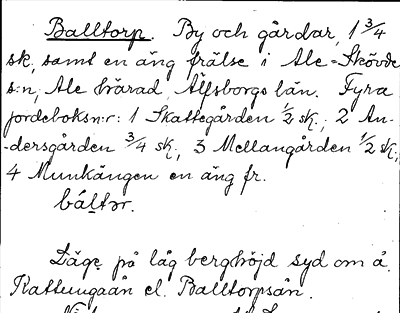 Balltorp. By och gårdar, 1 3/4
sk, samt en äng frälse i Ale-Skövde
s:n, Ale härad, Älfsborgs län. Fyra
jordeboksn:r: 1 Skattegården 1/2 sk.; 2 An-
-dersgården 3/4 sk.; 3 Mellangården 1/2 sk.;
4 Munkängen en äng fr.
báltɘr.
Läge på låg berghöjd syd om å.
Kattungaån el. Balltorpsån.